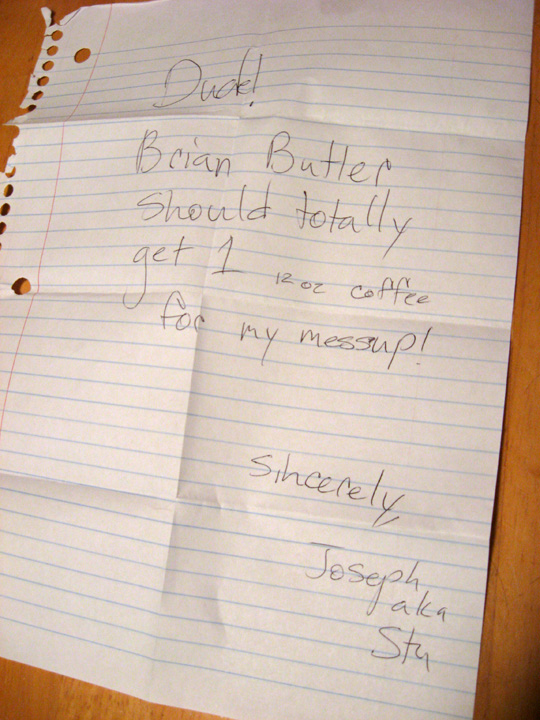 Dude!
Brian Butler
should totally
get 1 12 oz coffee
for my messup!
Sincerely,
Joseph
aka
Stu